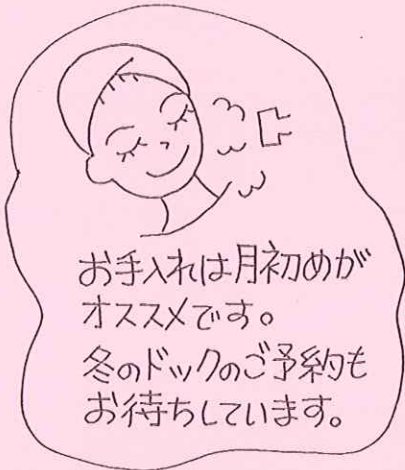 お手入れは月初めが
オススメです。
冬のドックのご予約も
お待ちしています。